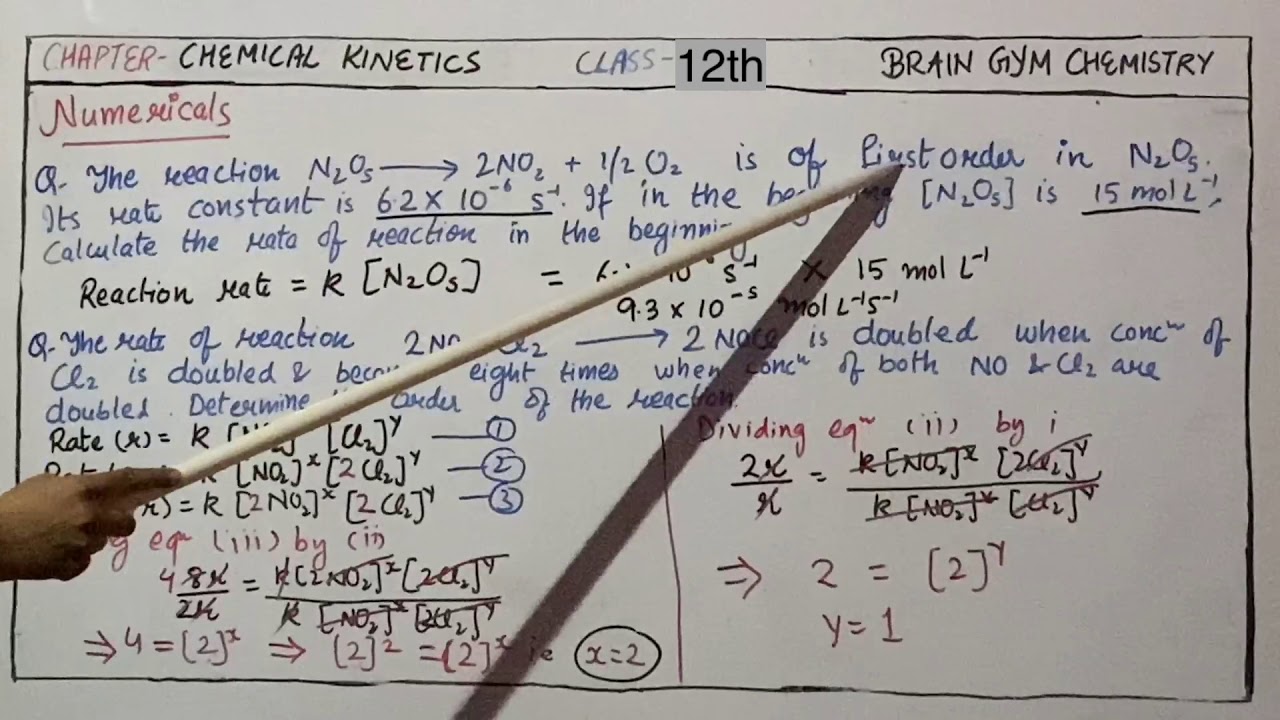 CHAPTER- CHEMICAL KINETICS CLASS- 12th BRAIN GYM CHEMISTRY
Numericals
Q- The reaction N₂O₅ → 2NO₂ + 1/2 O₂ is of first order in N₂O₅.
Its rate constant is 6.2 × 10⁻⁶ s⁻¹. If in the [N₂O₅] is 15 mol L⁻¹,
Calculate the rata of reaction in the
Reaction rate = k [N₂O₅] = s⁻¹ × 15 mol L⁻¹
9.3 × 10⁻⁵ mol L⁻¹s⁻¹
Q- The rate of reaction → 2 is doubled when concⁿ of
Cl₂ is doubled & eight times when concⁿ of both NO & Cl₂ are
doubled. Determine order of the reaction.
Rate (r) = k [Cl₂]ʸ — ①
[NO₂]ˣ [2Cl₂]ʸ — ②
= k [2NO₂]ˣ [2Cl₂]ʸ — ③
eqⁿ (iii) by (ii)
4 8r/2r = k[2NO₂]ˣ [2Cl₂]ʸ / k [NO₂]ˣ [2Cl₂]ʸ
⇒ 4 = [2]ˣ ⇒ [2]² = [2]ˣ ie x=2
Dividing eqⁿ (ii) by i
2r/r = k [NO₂]ˣ [2Cl₂]ʸ / k [NO₂]ˣ [Cl₂]ʸ
⇒ 2 = [2]ʸ
y = 1